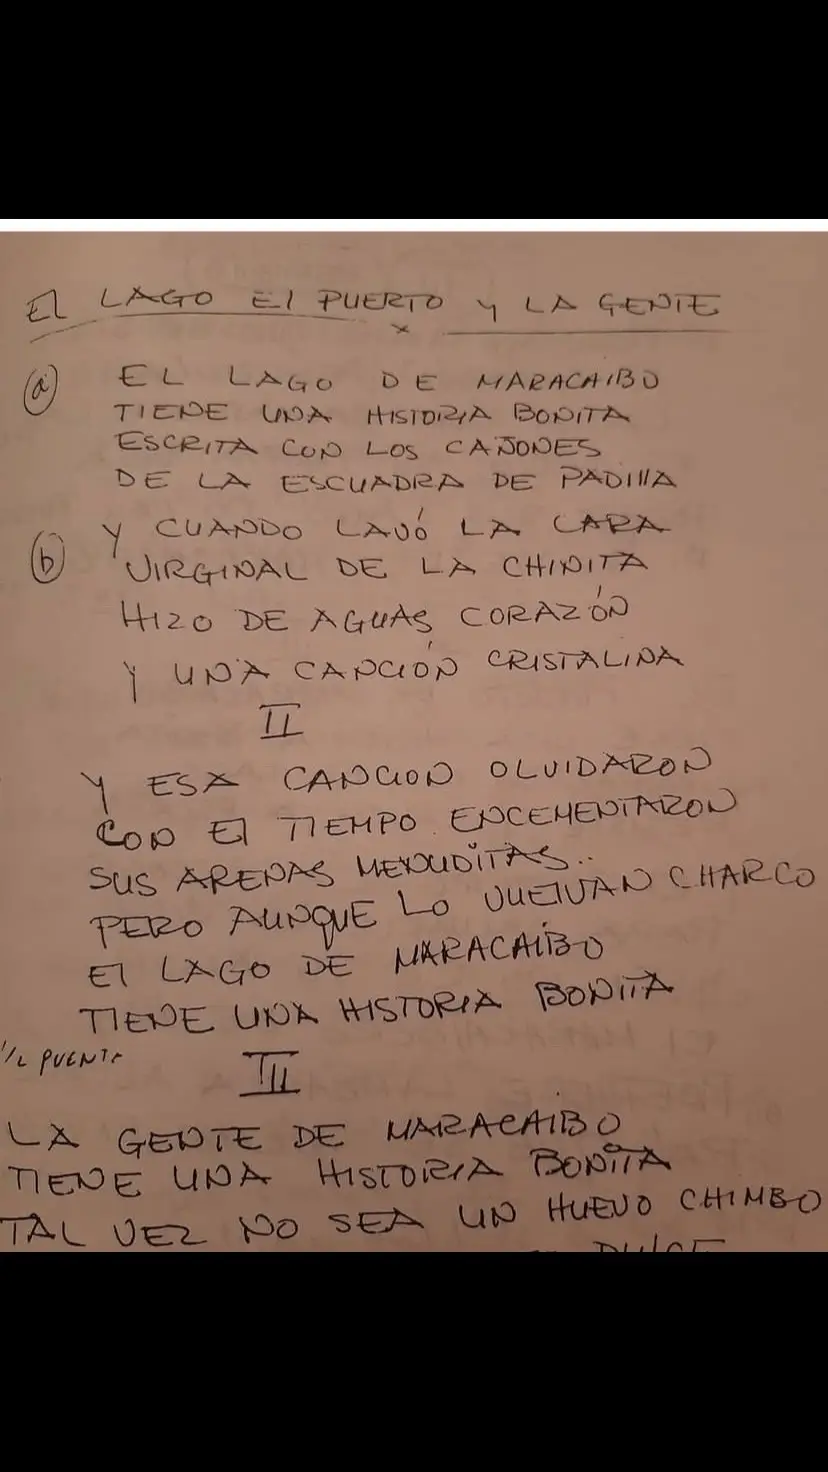 El LAGO El PUERTO Y LA GENTE
x
(a) EL LAGO DE MARACAIBO
TIENE UNA HISTORIA BONITA
ESCRITA CON LOS CAÑONES
DE LA ESCUADRA DE PADIllA
(b) Y CUANDO LAVÓ LA CARA
VIRGINAL DE LA CHINITA
HIZO DE AGUAS CORAZÓN
Y UNA CANCIÓN CRISTALINA
II
Y ESA CANCION OLVIDARON
CON El TIEMPO ENCEMENTARON
SUS ARENAS MENUDITAS..
PERO AUNQUE LO VUElVAN CHARCO
El LAGO DE MARACAIBO
TIENE UNA HISTORIA BONITA
1/2 PUENTE
III
LA GENTE DE MARACAIBO
TIENE UNA HISTORIA BONITA
TAL VEZ NO SEA UN HUEVO CHIMBO
DUlCE